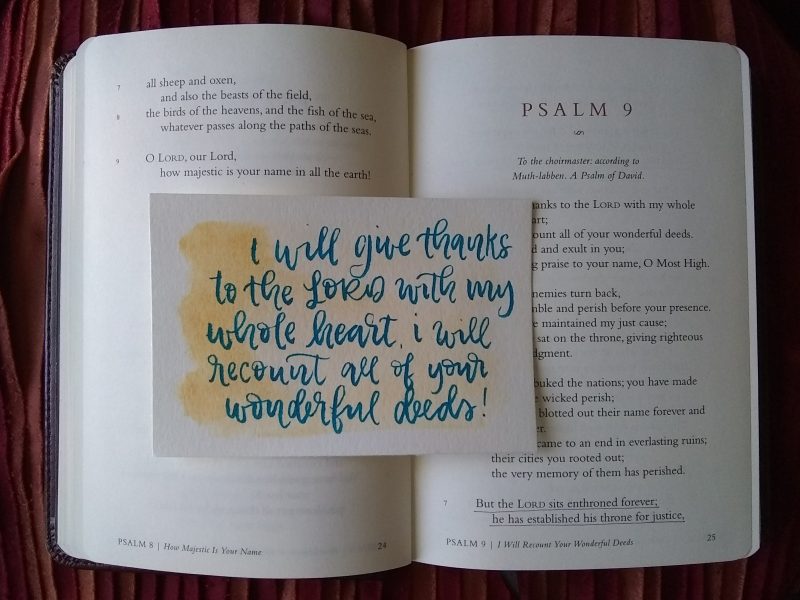 7 all sheep and oxen,
and also the beasts of the field,
8 the birds of the heavens, and the fish of the sea,
whatever passes along the paths of the seas.
9 O LORD, our Lord,
how majestic is your name in all the earth!
PSALM 8 | How Majestic Is Your Name 24
I will give thanks
to the LORD with my
whole heart, i will
recount all of your
wonderful deeds!
PSALM 9
To the choirmaster: according to
Muth-labben. A Psalm of David.
to the LORD with my whole
all of your wonderful deeds.
and exult in you;
praise to your name, O Most High.
enemies turn back,
and perish before your presence.
maintained my just cause;
sat on the throne, giving righteous
the nations; you have made
wicked perish;
blotted out their name forever and
came to an end in everlasting ruins;
their cities you rooted out;
the very memory of them has perished.
7 But the LORD sits enthroned forever;
he has established his throne for justice,
PSALM 9 | I Will Recount Your Wonderful Deeds 25